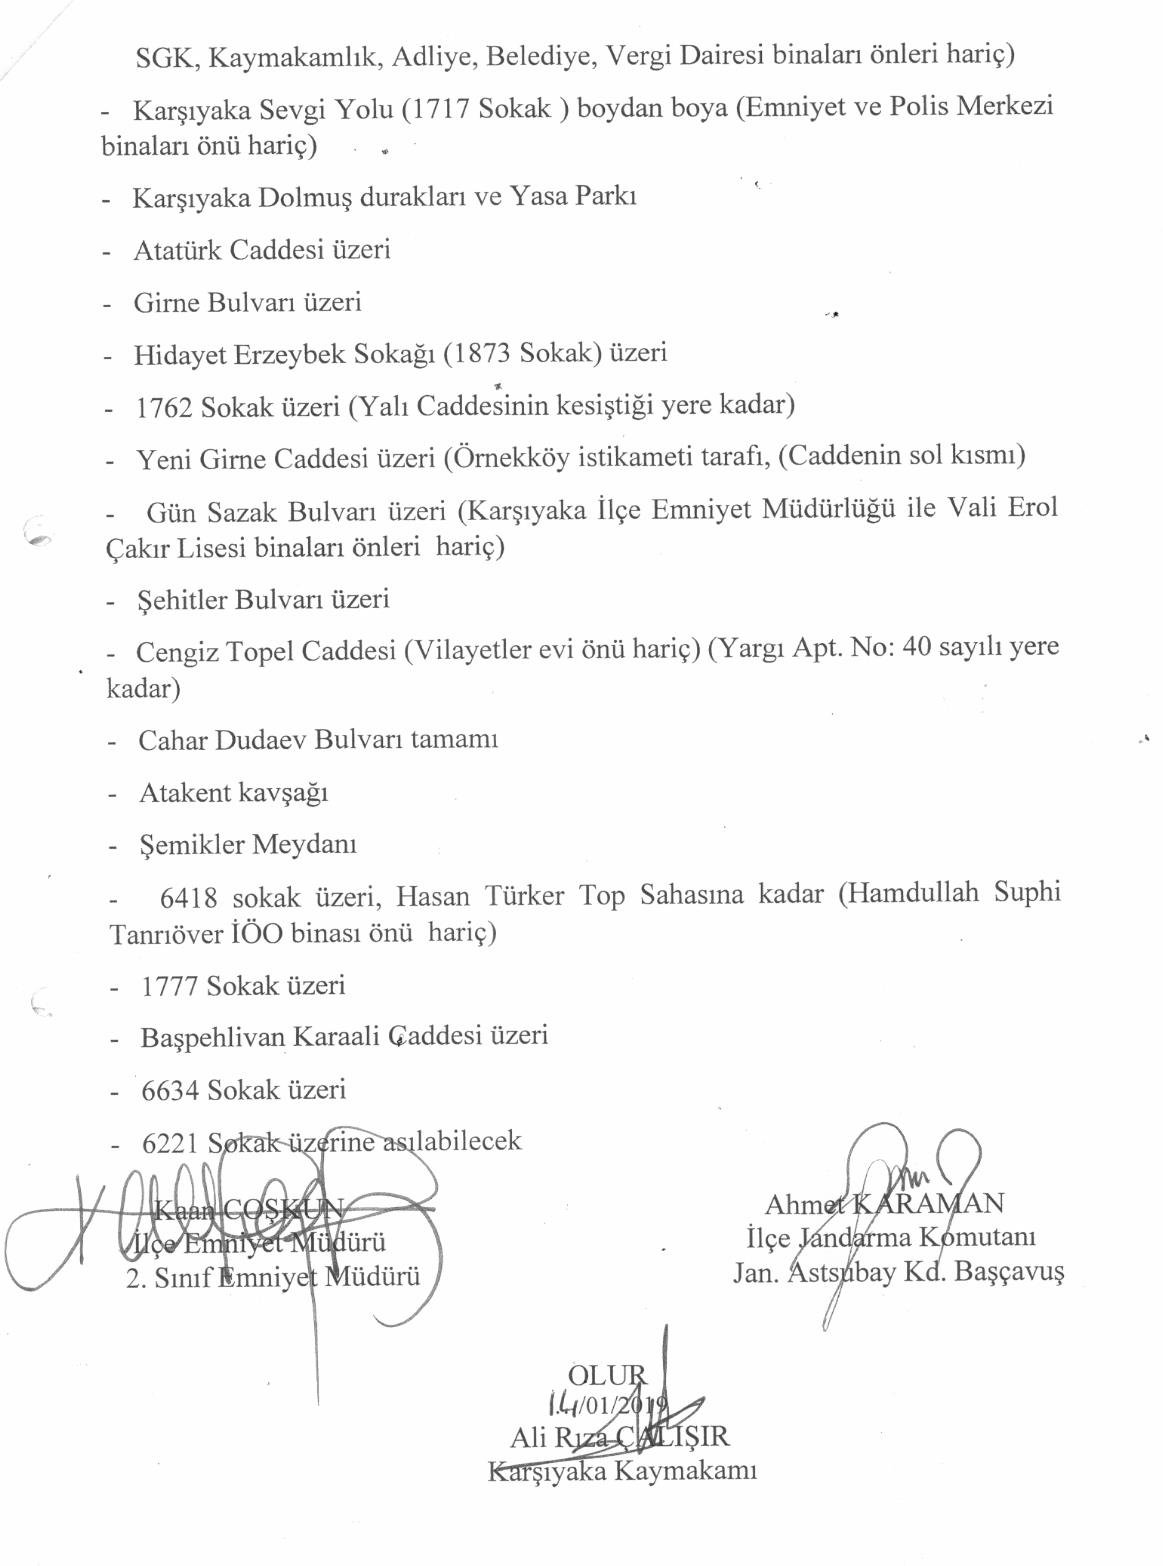 SGK, Kaymakamlık, Adliye, Belediye, Vergi Dairesi binaları önleri hariç)
- Karşıyaka Sevgi Yolu (1717 Sokak ) boydan boya (Emniyet ve Polis Merkezi
binaları önü hariç)
- Karşıyaka Dolmuş durakları ve Yasa Parkı
- Atatürk Caddesi üzeri
- Girne Bulvarı üzeri
- Hidayet Erzeybek Sokağı (1873 Sokak) üzeri
- 1762 Sokak üzeri (Yalı Caddesinin kesiştiği yere kadar)
- Yeni Girne Caddesi üzeri (Örnekköy istikameti tarafı, (Caddenin sol kısmı)
- Gün Sazak Bulvarı üzeri (Karşıyaka İlçe Emniyet Müdürlüğü ile Vali Erol
Çakır Lisesi binaları önleri hariç)
- Şehitler Bulvarı üzeri
- Cengiz Topel Caddesi (Vilayetler evi önü hariç) (Yargı Apt. No: 40 sayılı yere
kadar)
- Cahar Dudaev Bulvarı tamamı
- Atakent kavşağı
- Şemikler Meydanı
- 6418 sokak üzeri, Hasan Türker Top Sahasına kadar (Hamdullah Suphi
Tanrıöver İÖO binası önü hariç)
- 1777 Sokak üzeri
- Başpehlivan Karaali Caddesi üzeri
- 6634 Sokak üzeri
- 6221 Sokak üzerine asılabilecek
Kaan COŞKUN
İlçe Emniyet Müdürü
2. Sınıf Emniyet Müdürü
Ahmet KARAMAN
İlçe Jandarma Komutanı
Jan. Astsubay Kd. Başçavuş
OLUR
14/01/2019
Ali Rıza ÇALIŞIR
Karşıyaka Kaymakamı